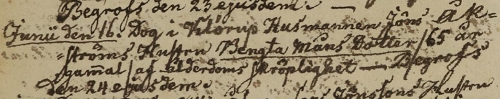 Begrofs den 23 ejusdem.
Junii den 16. Dog i Klörup Husmannen Jöns Åk-
ströms Hustru Bengta Måns Dotter, 65 år
gamal af ålderdoms skröplighet — Begrofs
den 24 ejusdem.
Hustru